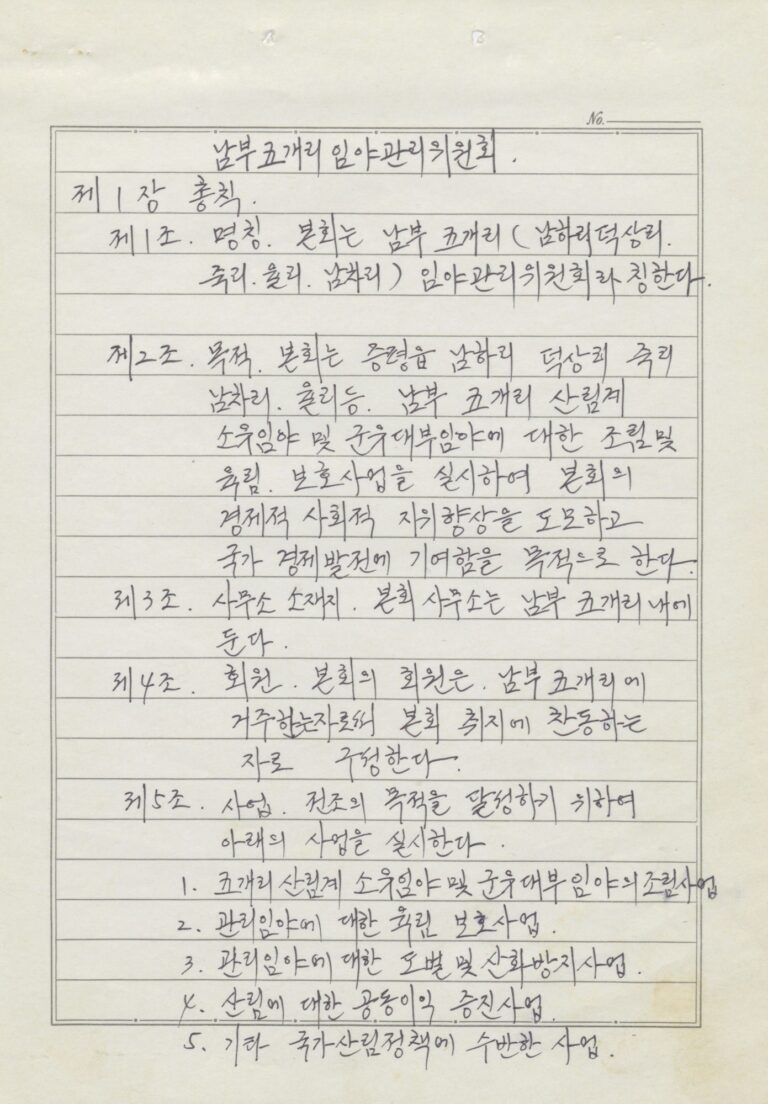 No.
남부 五개리 임야관리위원회.
제1장 총칙.
제1조. 명칭. 본회는 남부 五개리 (남하리 덕상리.
죽리. 율리. 남차리) 임야관리위원회라 칭한다.
제2조. 목적. 본회는 증평읍 남하리 덕상리 죽리
남차리. 율리등. 남부 五개리 산림계
소유임야 및 군유대부임야에 대한 조림및
육림. 보호사업을 실시하여 본회의
경제적 사회적 지위향상을 도모하고
국가 경제발전에 기여함을 목적으로 한다.
제3조. 사무소 소재지. 본회 사무소는 남부 五개리 내에
둔다.
제4조. 회원. 본회의 회원은. 남부 五개리에
거주하는자로써 본회 취지에 찬동하는
자로 구성한다.
제5조. 사업. 전조의 목적을 달성하기 위하여
아래의 사업을 실시한다.
1. 五개리 산림계 소유임야 및 군유대부임야의 조림사업
2. 관리임야에 대한 육림 보호사업.
3. 관리임야에 대한 도벌 및 산화방지사업.
4. 산림에 대한 공동이익 증진사업.
5. 기타 국가산림정책에 수반한 사업.